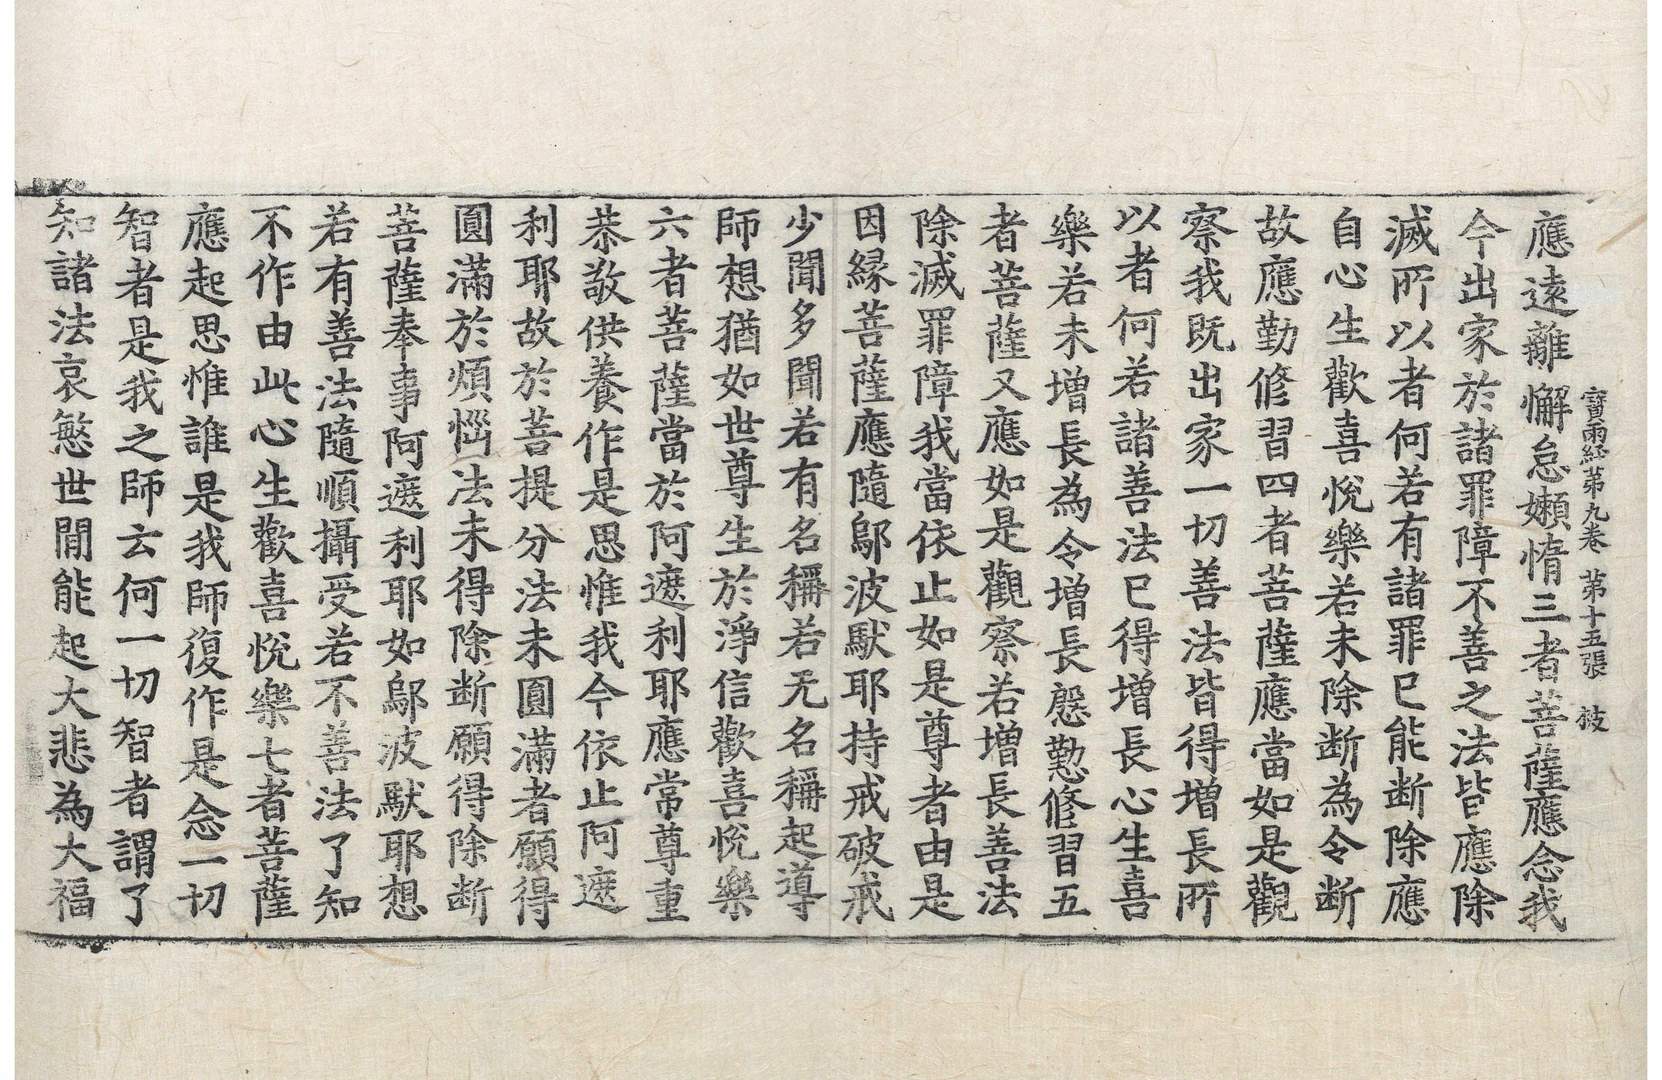 寶雨經第九卷 第十五張 被
應遠離懈怠嬾惰三者菩薩應念我
今出家於諸罪障不善之法皆應除
滅所以者何若有諸罪已能斷除應
自心生歡喜悅樂若未除断為令断
故應勤修習四者菩薩應當如是觀
察我既出家一切善法皆得增長所
以者何若諸善法已得增長心生喜
樂若未增長為令增長慇懃修習五
者菩薩又應如是觀察若增長善法
除滅罪障我當依止如是尊者由是
因縁菩薩應隨鄔波馱耶持戒破戒
少聞多聞若有名稱若无名稱起導
師想猶如世尊生於淨信歡喜悅樂
六者菩薩當於阿遮利耶應常尊重
恭敬供養作是思惟我今依止阿遮
利耶故於菩提分法未圓滿者願得
圓滿於煩惱法未得除断願得除断
菩薩奉事阿遮利耶如鄔波馱耶想
若有善法隨順攝受若不善法了知
不作由此心生歡喜悅樂七者菩薩
應起思惟誰是我師復作是念一切
智者是我之師云何一切智者謂了
知諸法哀愍世閒能起大悲為大福